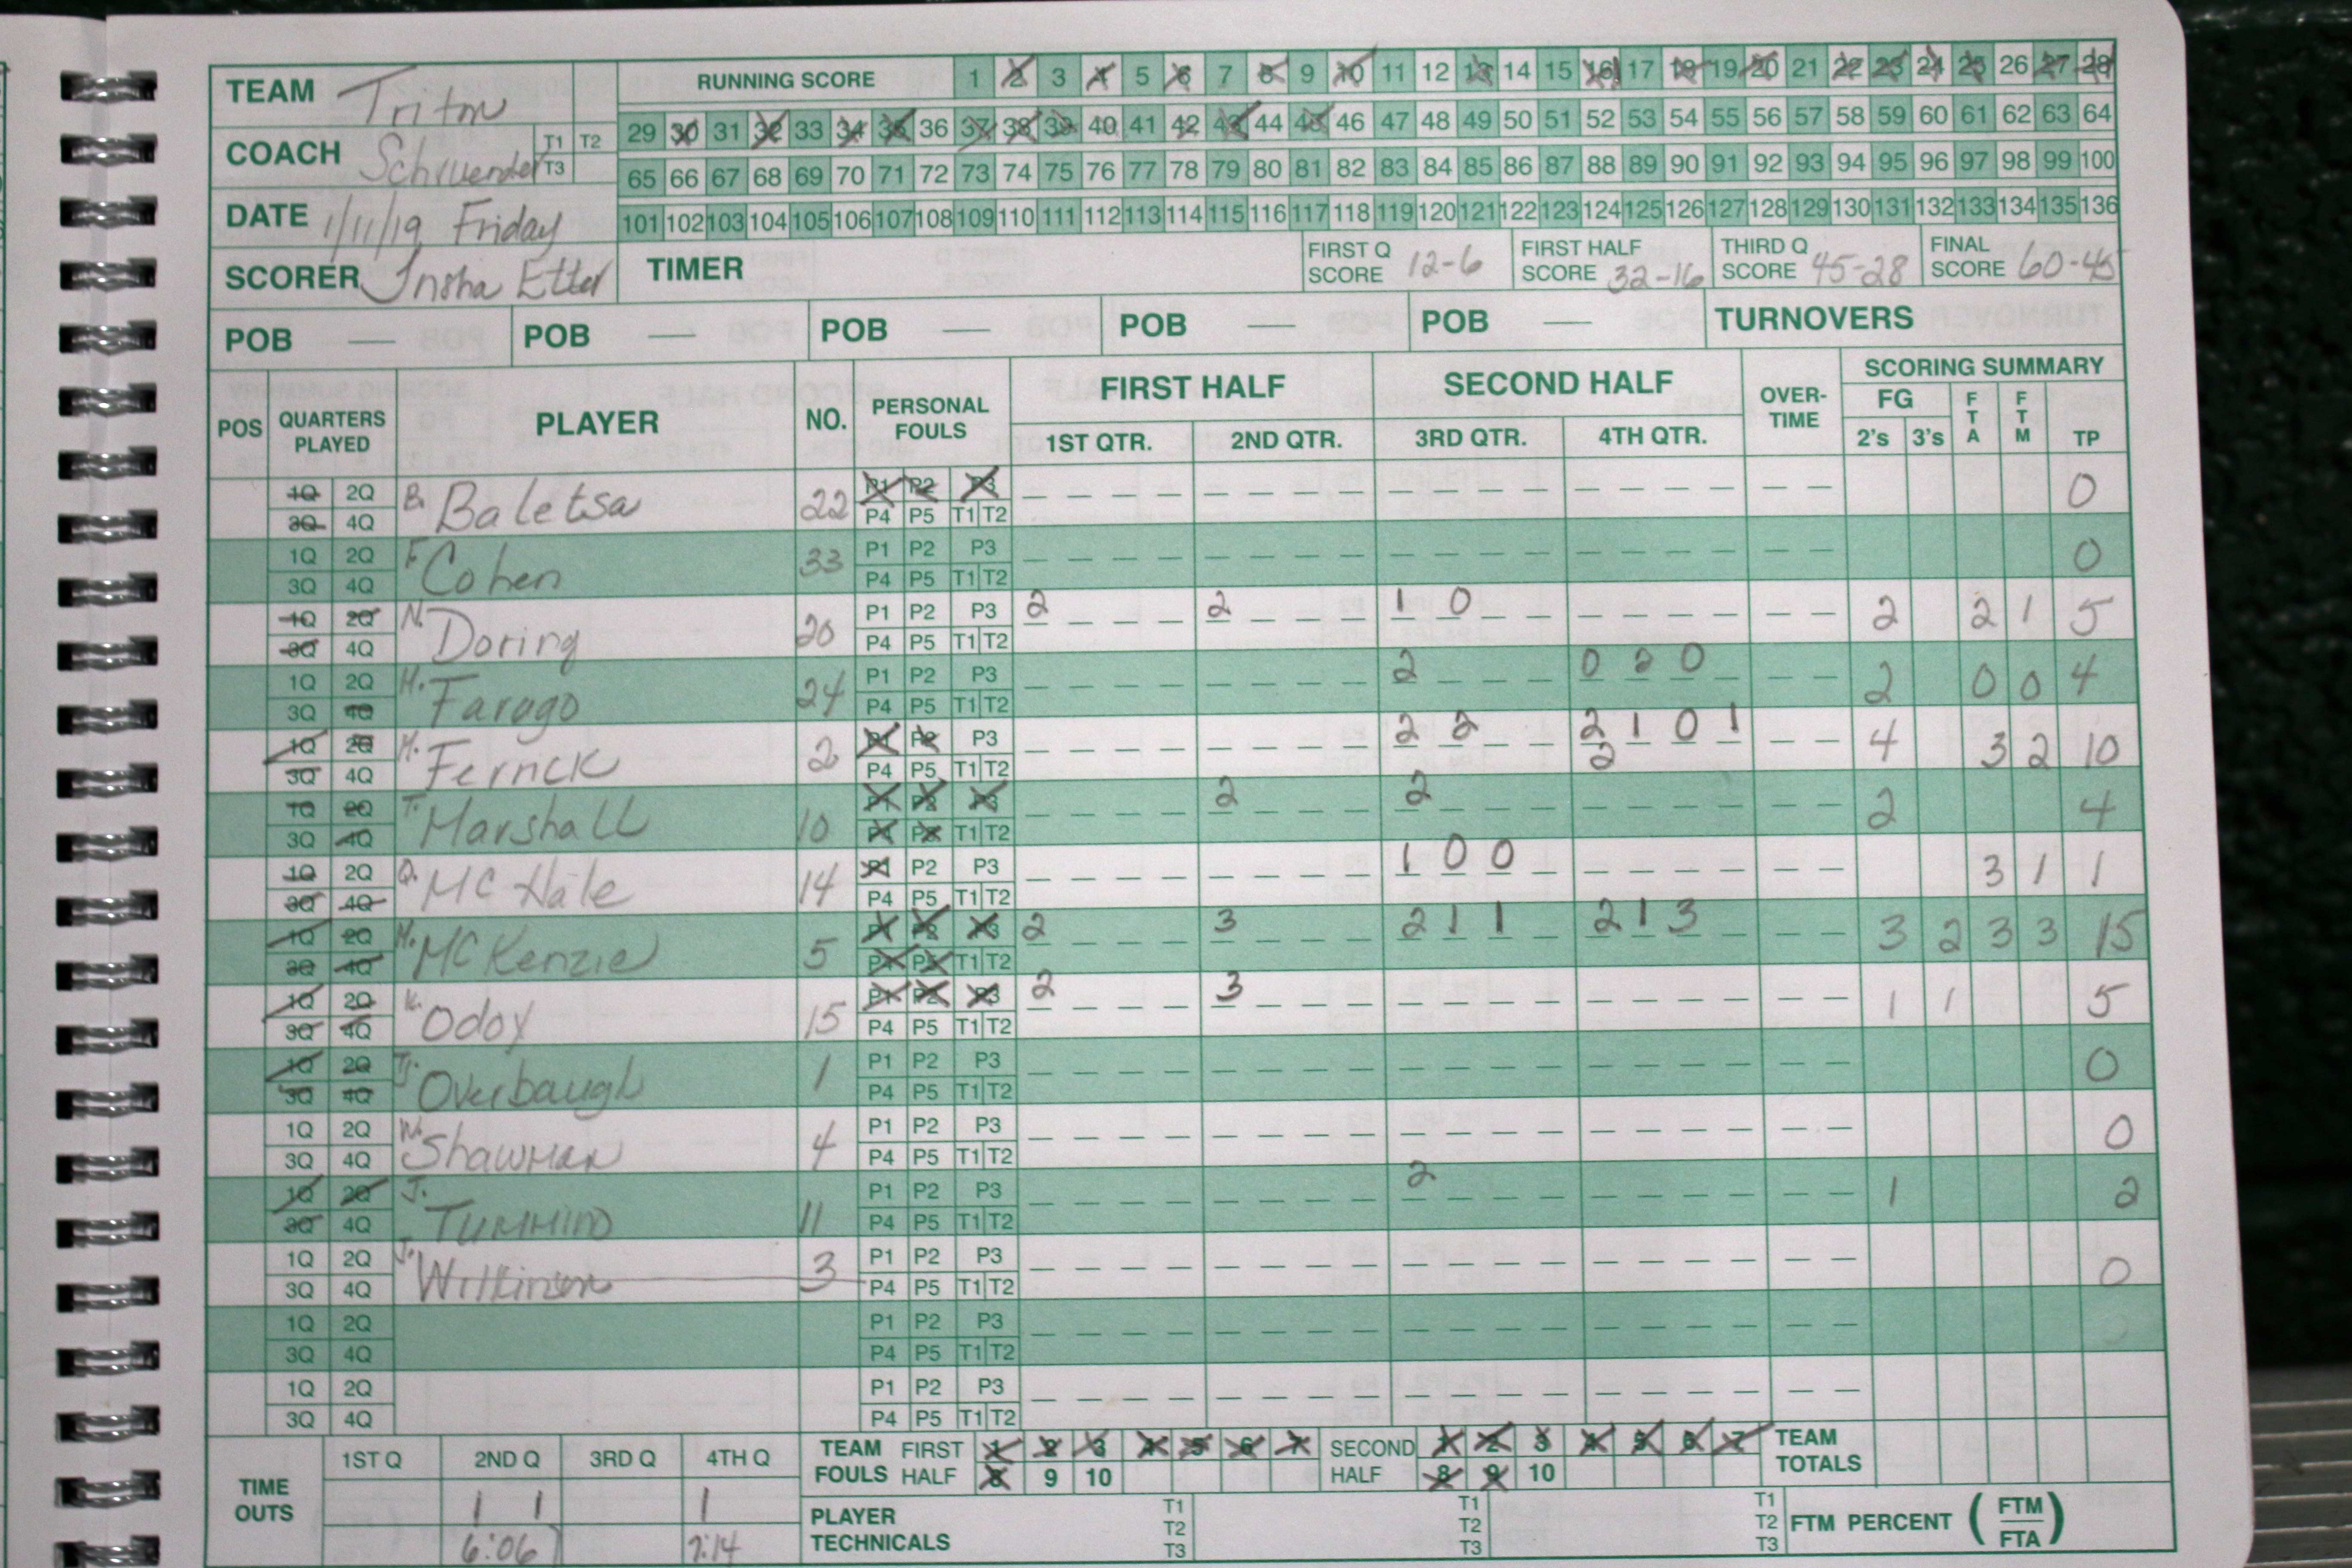 TEAM Triton RUNNING SCORE 1 2 3 4 5 6 7 8 9 10 11 12 13 14 15 16 17 18 19 20 21 22 23 24 25 26 27 28
29 30 31 32 33 34 35 36 37 38 39 40 41 42 43 44 45 46 47 48 49 50 51 52 53 54 55 56 57 58 59 60 61 62 63 64
COACH T1 T2 T3
65 66 67 68 69 70 71 72 73 74 75 76 77 78 79 80 81 82 83 84 85 86 87 88 89 90 91 92 93 94 95 96 97 98 99 100
DATE 1/11/19 Friday 101 102 103 104 105 106 107 108 109 110 111 112 113 114 115 116 117 118 119 120 121 122 123 124 125 126 127 128 129 130 131 132 133 134 135 136
SCORER TIMER FIRST Q SCORE 12-6 FIRST HALF SCORE 32-16 THIRD Q SCORE 45-28 FINAL SCORE 60-45
POB — POB — POB — POB — POB — TURNOVERS
POS QUARTERS PLAYED PLAYER NO. PERSONAL FOULS FIRST HALF SECOND HALF OVER-TIME SCORING SUMMARY
1ST QTR. 2ND QTR. 3RD QTR. 4TH QTR. FG 2's 3's FTA FTM TP
1Q 2Q B. Baletsa 22 P1 P2 P3 0
3Q 4Q P4 P5 T1 T2
1Q 2Q F Cohen 33 P1 P2 P3 0
3Q 4Q P4 P5 T1 T2
1Q 2Q N. Doring 20 P1 P2 P3 2 2 1 0 2 2 1 5
3Q 4Q P4 P5 T1 T2
1Q 2Q H. Farago 24 P1 P2 P3 2 0 2 0 2 0 0 4
3Q 4Q P4 P5 T1 T2
1Q 2Q M. 2 P1 P2 P3 2 2 2 1 0 1 4 3 2 10
3Q 4Q P4 P5 T1 T2 2
1Q 2Q T. Marshall 10 P1 P2 P3 2 2 2 4
3Q 4Q P4 P5 T1 T2
1Q 2Q Q. McHale 14 P1 P2 P3 1 0 0 3 1 1
3Q 4Q P4 P5 T1 T2
1Q 2Q M. McKenzie 5 P1 P2 P3 2 3 2 1 1 2 1 3 3 2 3 3 15
3Q 4Q P4 P5 T1 T2
1Q 2Q K. Odoy 15 P1 P2 P3 2 3 1 1 5
3Q 4Q P4 P5 T1 T2
1Q 2Q Overbaugh 1 P1 P2 P3 0
3Q 4Q P4 P5 T1 T2
1Q 2Q Shawman 4 P1 P2 P3 0
3Q 4Q P4 P5 T1 T2
1Q 2Q J. 11 P1 P2 P3 2 1 2
3Q 4Q P4 P5 T1 T2
1Q 2Q J. Wilkinson 3 P1 P2 P3 0
3Q 4Q P4 P5 T1 T2
1Q 2Q P1 P2 P3
3Q 4Q P4 P5 T1 T2
1Q 2Q P1 P2 P3
3Q 4Q P4 P5 T1 T2
TIME OUTS 1ST Q 2ND Q 3RD Q 4TH Q TEAM FOULS FIRST HALF 1 2 3 4 5 6 7 SECOND HALF 1 2 3 4 5 6 7 TEAM TOTALS
8 9 10 8 9 10
1 1 1 PLAYER TECHNICALS T1 T2 T3 T1 T2 T3 T1 T2 T3 FTM PERCENT (FTM/FTA)
6:06